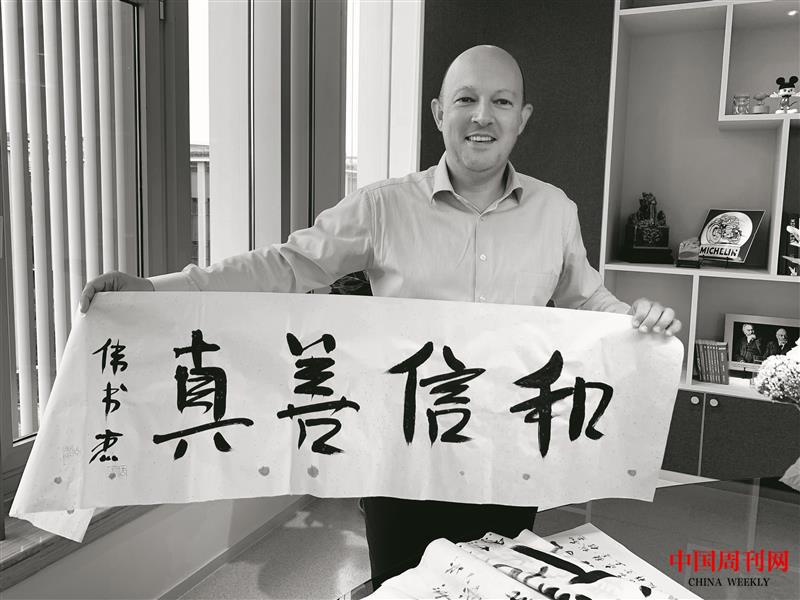 和信善真
伟书杰
MICHELIN
中国周刊网
CHINA WEEKLY